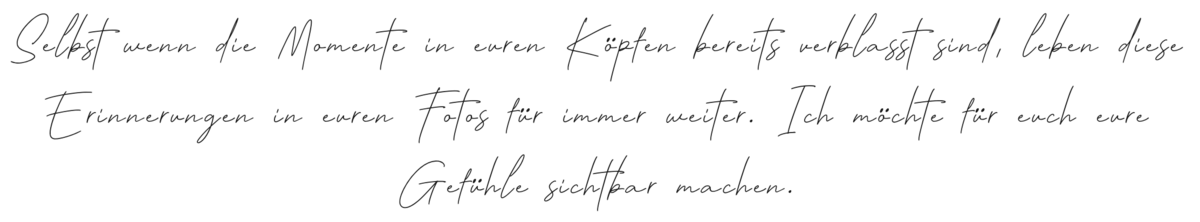 Selbst wenn die Momente in euren Köpfen bereits verblasst sind, leben diese
Erinnerungen in euren Fotos für immer weiter. Ich möchte für euch eure
Gefühle sichtbar machen.